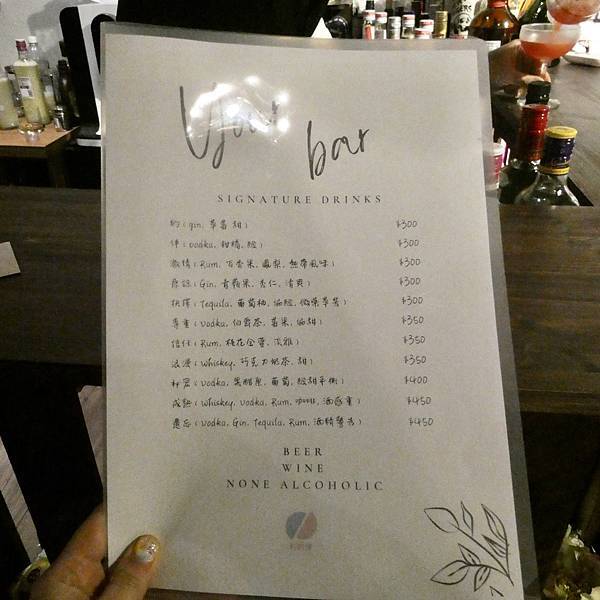 bar
SIGNATURE DRINKS
約（gin, 草莓, 甜） $300
伴（vodka, 柑橘, 酸） $300
激情（Rum, 百香果, 鳳梨, 熱帶風味） $300
原諒（Gin, 青蘋果, 杏仁, 清爽） $300
抉擇（Tequila, 葡萄柚, 偏酸, 微藥草苦） $300
尊重（Vodka, 伯爵茶, 莓果, 偏甜） $350
信任（Rum, 桂花金萱, 淡雅） $350
浪漫（whiskey, 巧克力奶茶, 甜） $350
秘密（Vodka, 黑醋栗, 葡萄, 酸甜平衡） $400
成熟（whiskey, Vodka, Rum, 咖啡, 酒感重） $450
遺忘（Vodka, Gin, Tequila, Rum, 酒精警告） $450
BEER
WINE
NONE ALCOHOLIC